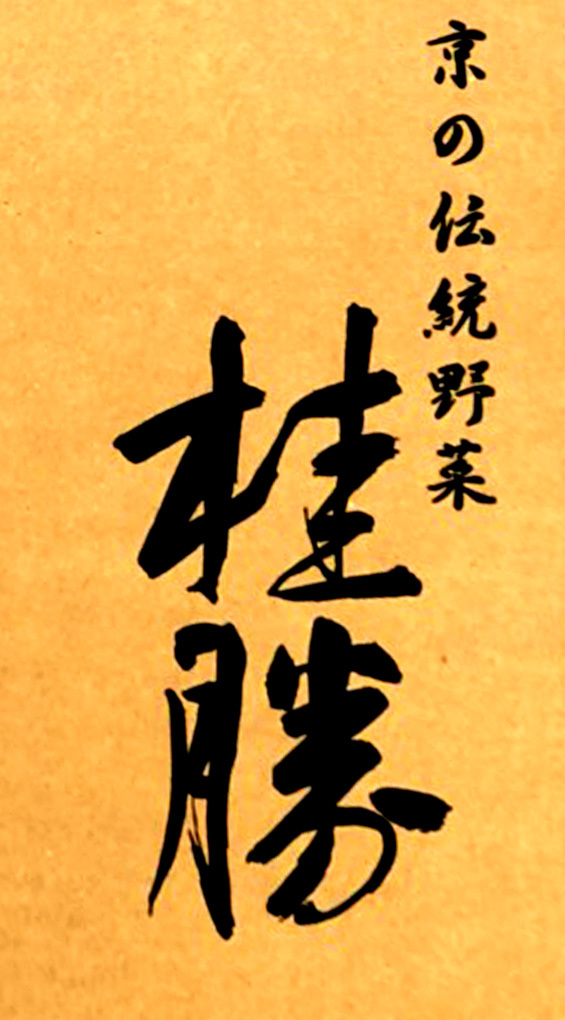 京の伝統野菜
桂勝